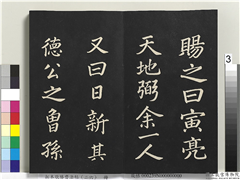 賜之曰寅亮
天地弼余一人
又曰日新其
德公之魯孫
3